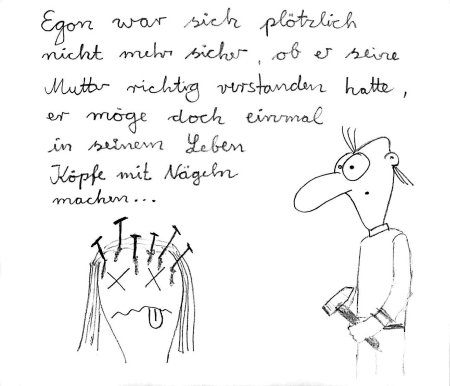 Egon war sich plötzlich
nicht mehr sicher, ob er seine
Mutter richtig verstanden hatte,
er möge doch einmal
in seinem Leben
Köpfe mit Nägeln
machen...